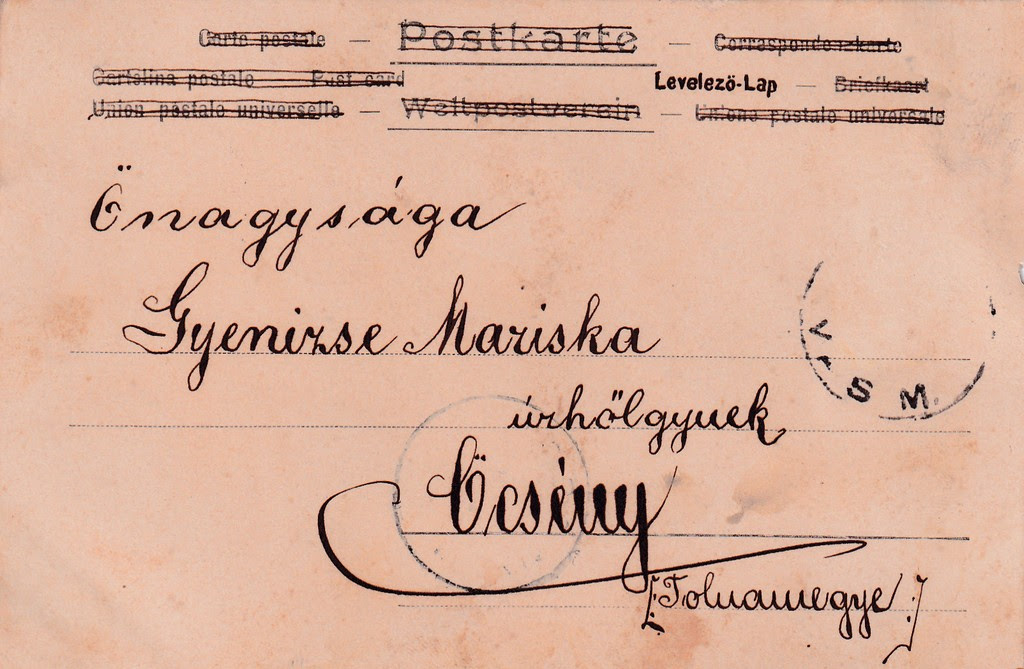 Carte postale — Postkarte — Correspondenzkarte
Cartolina postale — Post card Levelező-Lap — Briefkaart
Union postale universelle — Weltpostverein — Unione postale universale
Őnagysága
Gyenizse Mariska
úrhölgynek
Őcsény
[:Tolnamegye:]
V. S M.